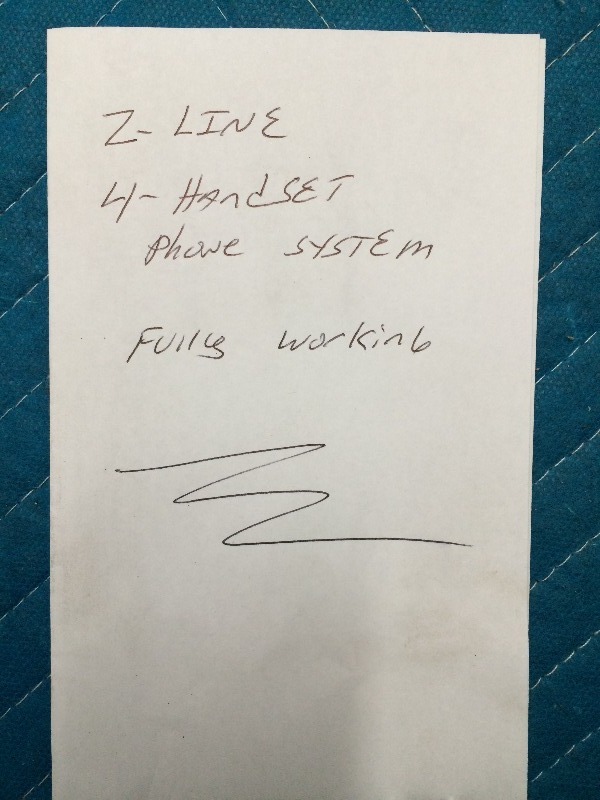 2-LINE
4-HAndSET
Phone SYSTEm
Fully workinG